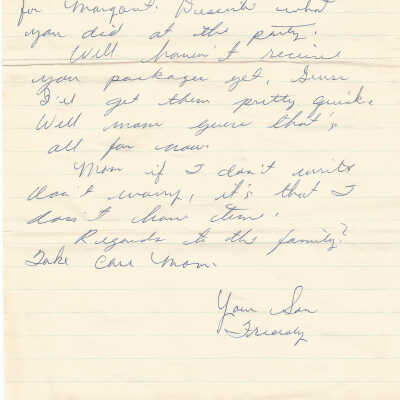 for Margaret. Presents what
you did at the party.
Well haven't receive
your packages yet, Guess
I'll get them pretty quick.
Well mom guess that's
all for now.
Mom if I don't write
don't worry, it's that I
don't have time.
Regards to the family?
Take Care Mom.
Your Son